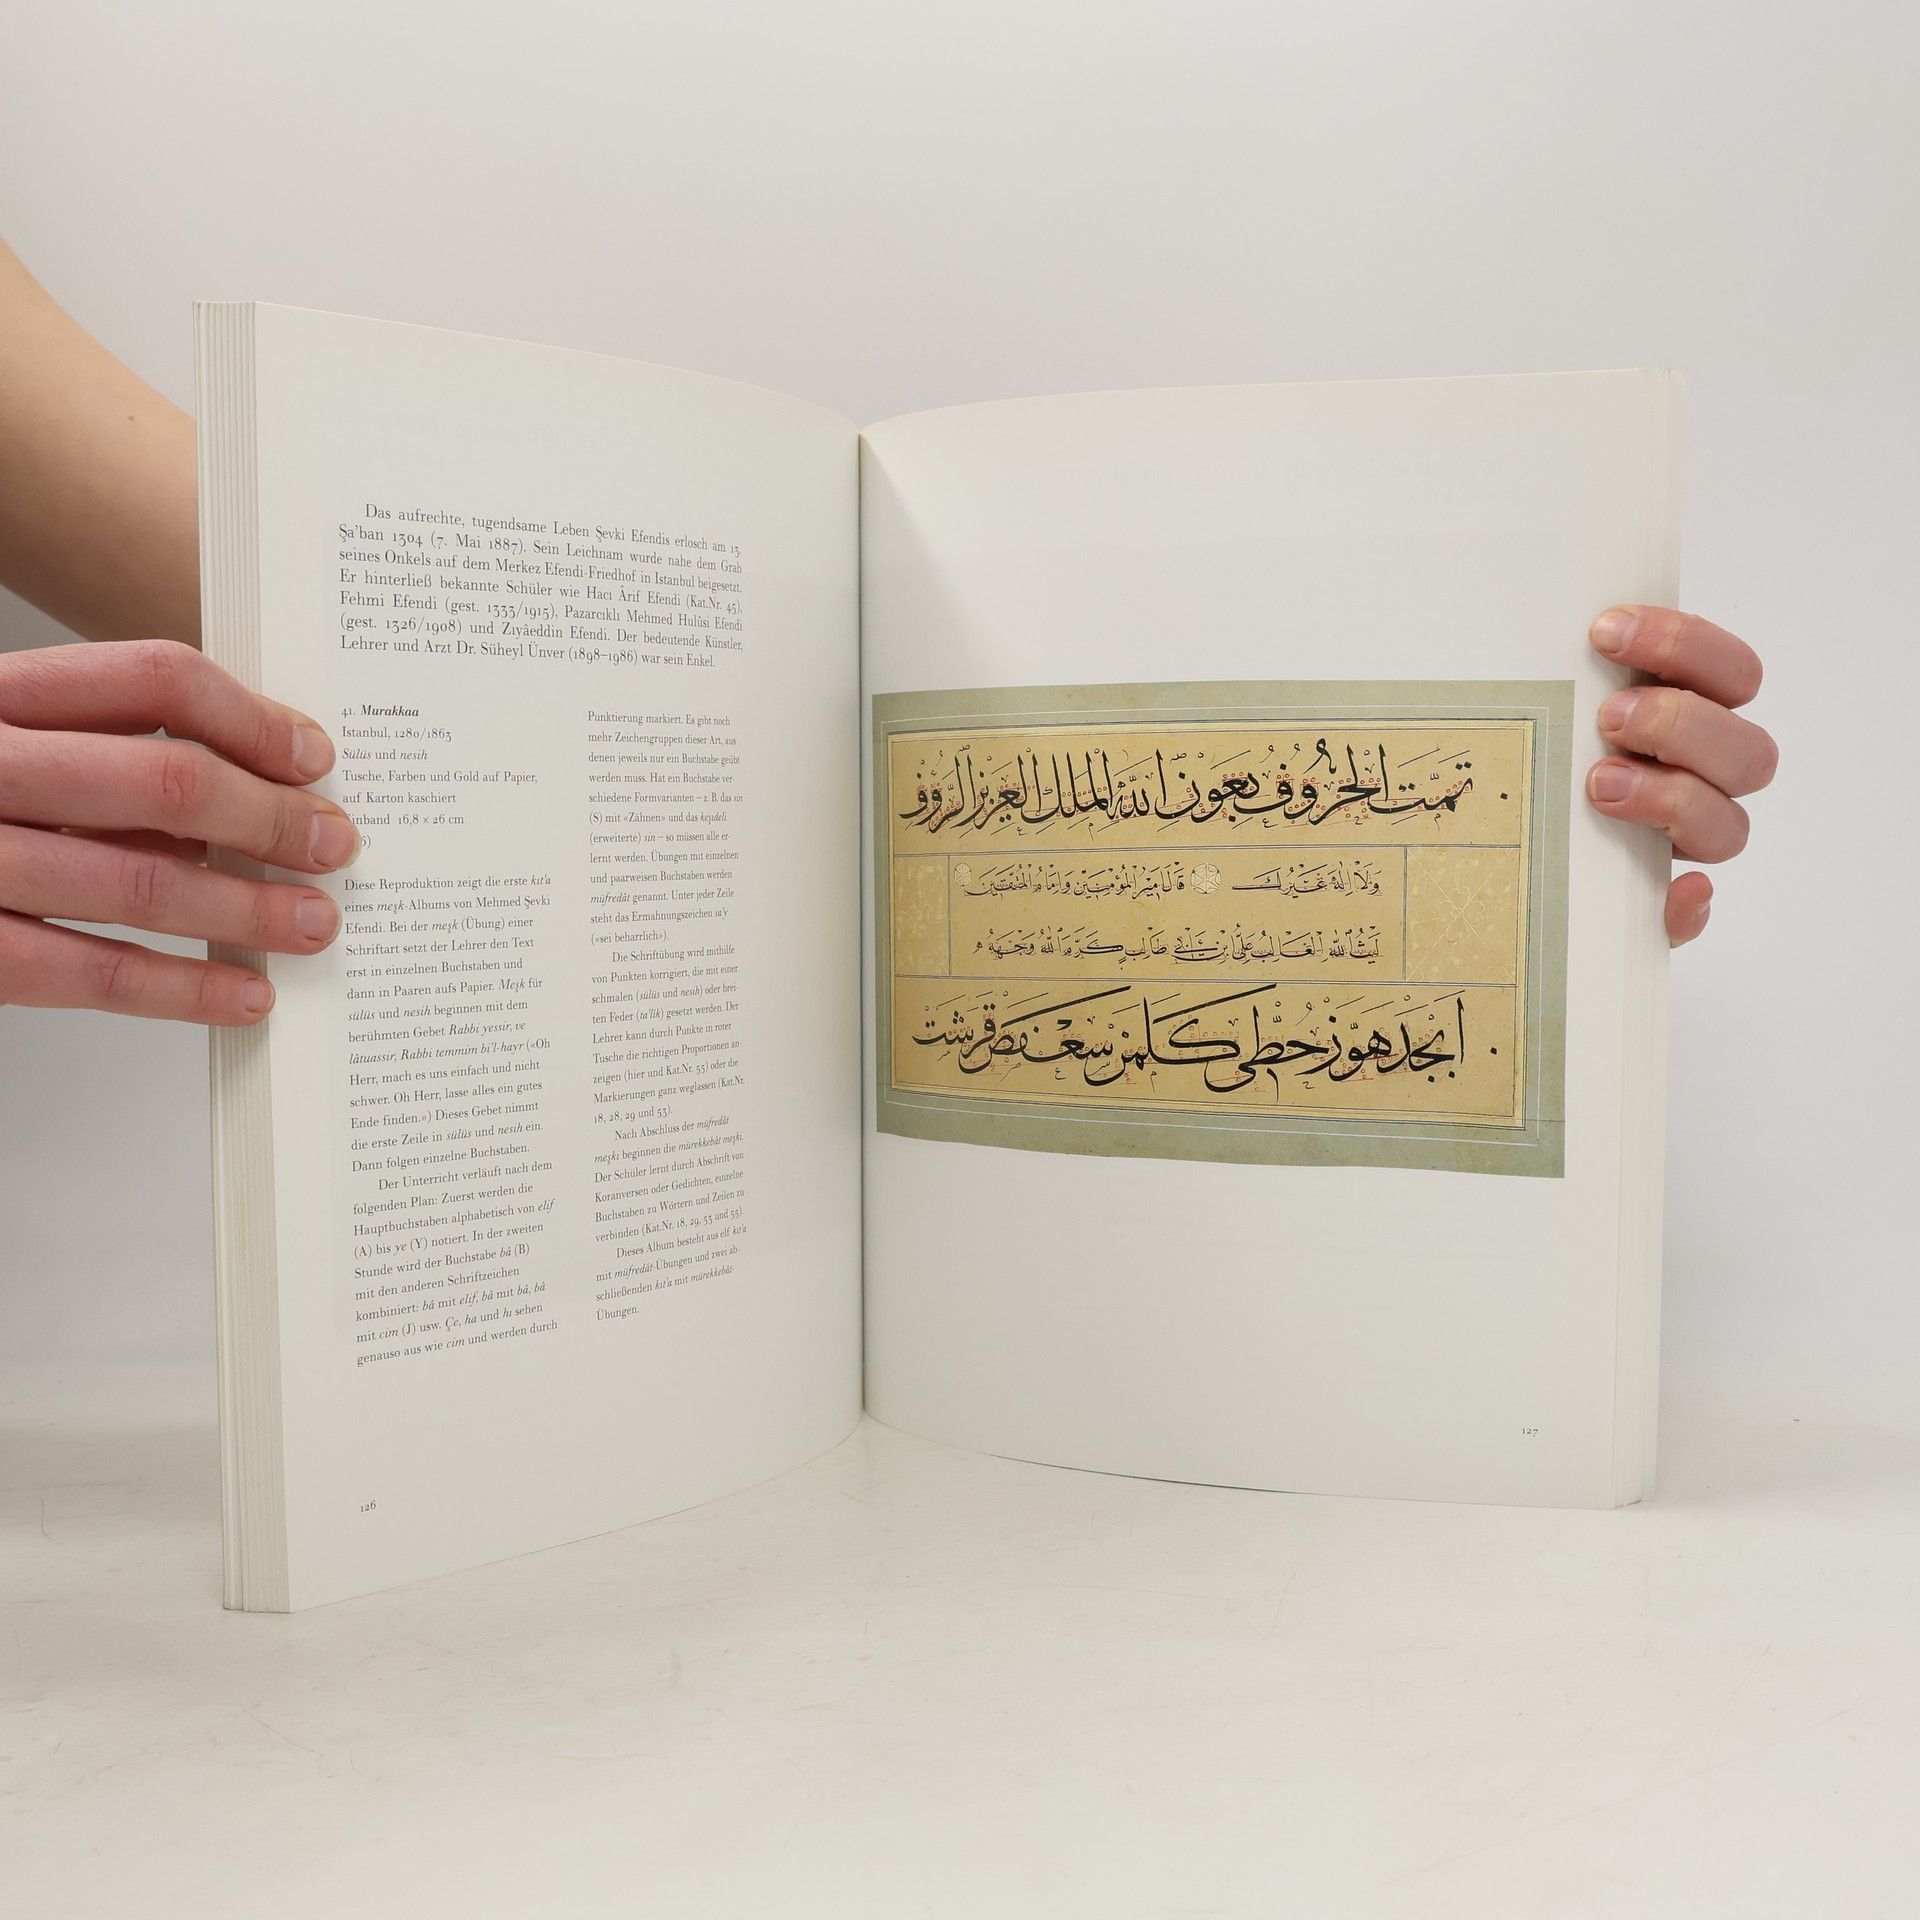 Das aufrechte, tugendsame Leben Şevki Efendis erlosch am 13.
Şa’ban 1304 (7. Mai 1887). Sein Leichnam wurde nahe dem Grab
seines Onkels auf dem Merkez Efendi-Friedhof in Istanbul beigesetzt.
Er hinterließ bekannte Schüler wie Hacı Ârif Efendi (Kat.Nr. 45),
Fehmi Efendi (gest. 1333/1915), Pazarcıklı Mehmed Hulûsi Efendi
(gest. 1326/1908) und Zıyâeddin Efendi. Der bedeutende Künstler,
Lehrer und Arzt Dr. Süheyl Ünver (1898–1986) war sein Enkel.
41. Murakkaa
Istanbul, 1280/1863
Sülüs und nesih
Tusche, Farben und Gold auf Papier,
auf Karton kaschiert
Einband 16,8 × 26 cm
Diese Reproduktion zeigt die erste kıt’a
eines meşk-Albums von Mehmed Şevki
Efendi. Bei der meşk (Übung) einer
Schriftart setzt der Lehrer den Text
erst in einzelnen Buchstaben und
dann in Paaren aufs Papier. Meşk für
sülüs und nesih beginnen mit dem
berühmten Gebet Rabbi yessir, ve
lâtuassir, Rabbi temmim bi’l-hayr («Oh
Herr, mach es uns einfach und nicht
schwer. Oh Herr, lasse alles ein gutes
Ende finden.») Dieses Gebet nimmt
die erste Zeile in sülüs und nesih ein.
Dann folgen einzelne Buchstaben.
Der Unterricht verläuft nach dem
folgenden Plan: Zuerst werden die
Hauptbuchstaben alphabetisch von elif
(A) bis ye (Y) notiert. In der zweiten
Stunde wird der Buchstabe bâ (B)
mit den anderen Schriftzeichen
kombiniert: bâ mit elif, bâ mit bâ, bâ
mit cim (J) usw. Çe, ha und hı sehen
genauso aus wie cim und werden durch
Punktierung markiert. Es gibt noch
mehr Zeichengruppen dieser Art, aus
denen jeweils nur ein Buchstabe geübt
werden muss. Hat ein Buchstabe ver-
schiedene Formvarianten – z. B. das sin
(S) mit «Zähnen» und das keşideli
(erweiterte) sin – so müssen alle er-
lernt werden. Übungen mit einzelnen
und paarweisen Buchstaben werden
müfredât genannt. Unter jeder Zeile
steht das Ermahnungszeichen sa’y
(«sei beharrlich»).
Die Schriftübung wird mithilfe
von Punkten korrigiert, die mit einer
schmalen (sülüs und nesih) oder brei-
ten Feder (ta’lik) gesetzt werden. Der
Lehrer kann durch Punkte in roter
Tusche die richtigen Proportionen an-
zeigen (hier und Kat.Nr. 55) oder die
Markierungen ganz weglassen (Kat.Nr.
18, 28, 29 und 53).
Nach Abschluss der müfredât
meşki beginnen die mürekkebât meşki.
Der Schüler lernt durch Abschrift von
Koranversen oder Gedichten, einzelne
Buchstaben zu Wörtern und Zeilen zu
verbinden (Kat.Nr. 18, 29, 53 und 55).
Dieses Album besteht aus elf kıt’a
mit müfredât-Übungen und zwei ab-
schließenden kıt’a mit mürekkebât-
Übungen.
126
تمت الحروف بعون الله الملك العزيز الرؤف
ولا اله غيرك قال امير المؤمنين وامام المتقين
ليث الله الغالب علي بن ابي طالب كرم الله وجهه
ابجد هوز حطي كلمن سعفص قرشت
127